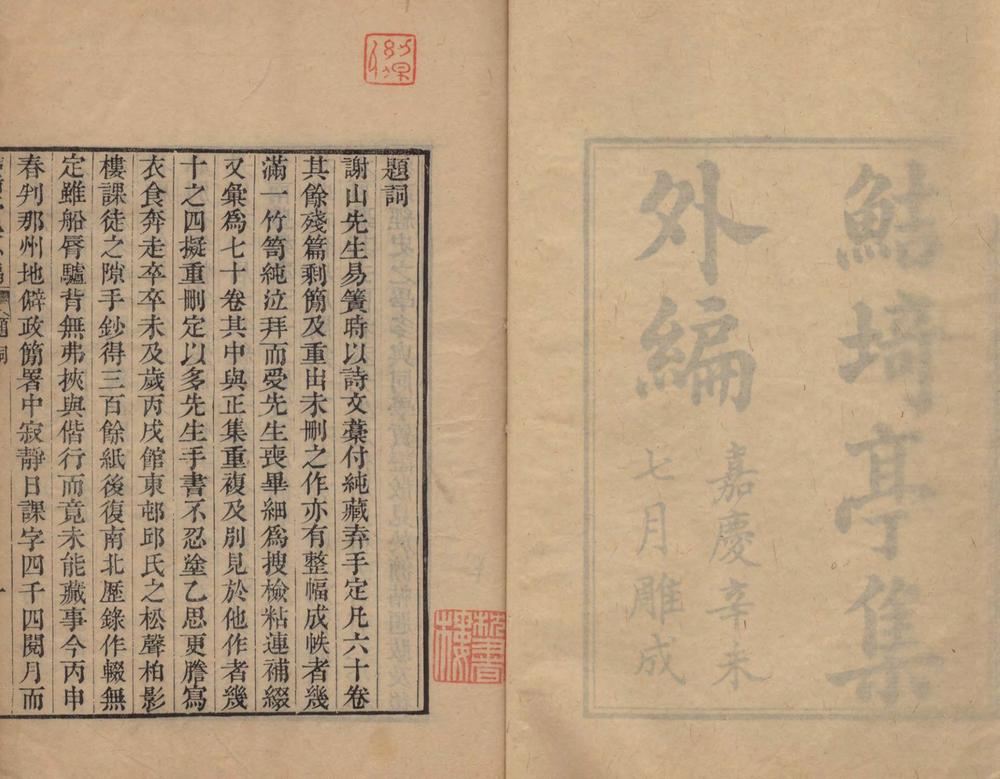 鮚埼亭集
外編
嘉慶辛未
七月雕成
題詞
謝山先生易簀時以詩文藁付純藏弆手定凡六十卷
其餘殘篇剩簡及重出未刪之作亦有整幅成帙者幾
滿一竹笥純泣拜而受先生喪畢細爲搜檢粘連補綴
又彙爲七十卷其中與正集重複及別見於他作者幾
十之四擬重刪定以多先生手書不忍塗乙思更謄寫
衣食奔走卒卒未及歲丙戌館東邨邱氏之松聲柏影
樓課徒之隙手鈔得三百餘紙後復南北歷錄作輟無
定雖船脣驢背無弗挾與偕行而竟未能蕆事今丙申
春判那州地僻政簡署中寂靜日課字四千四閱月而
題詞
一